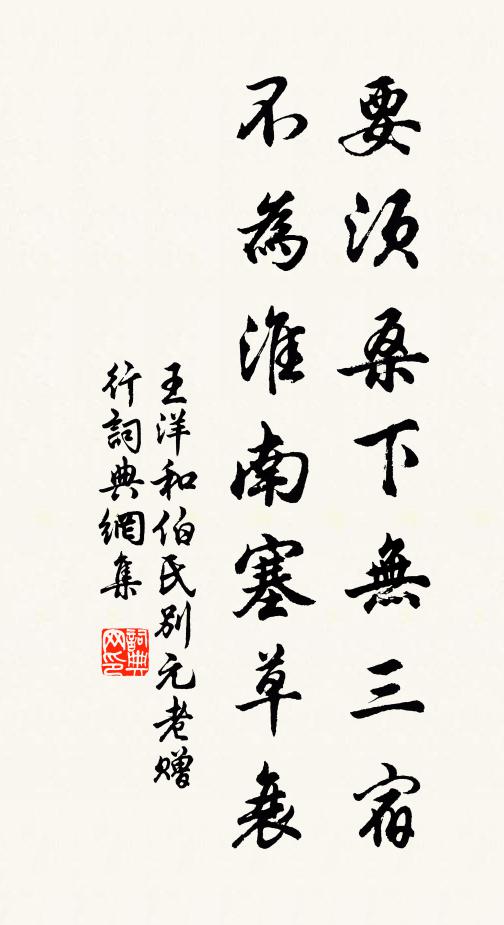 要須桑下無三宿
不為淮南塞草衰
王洋和伯氏別元老贈
行詞典網集
詞典網印